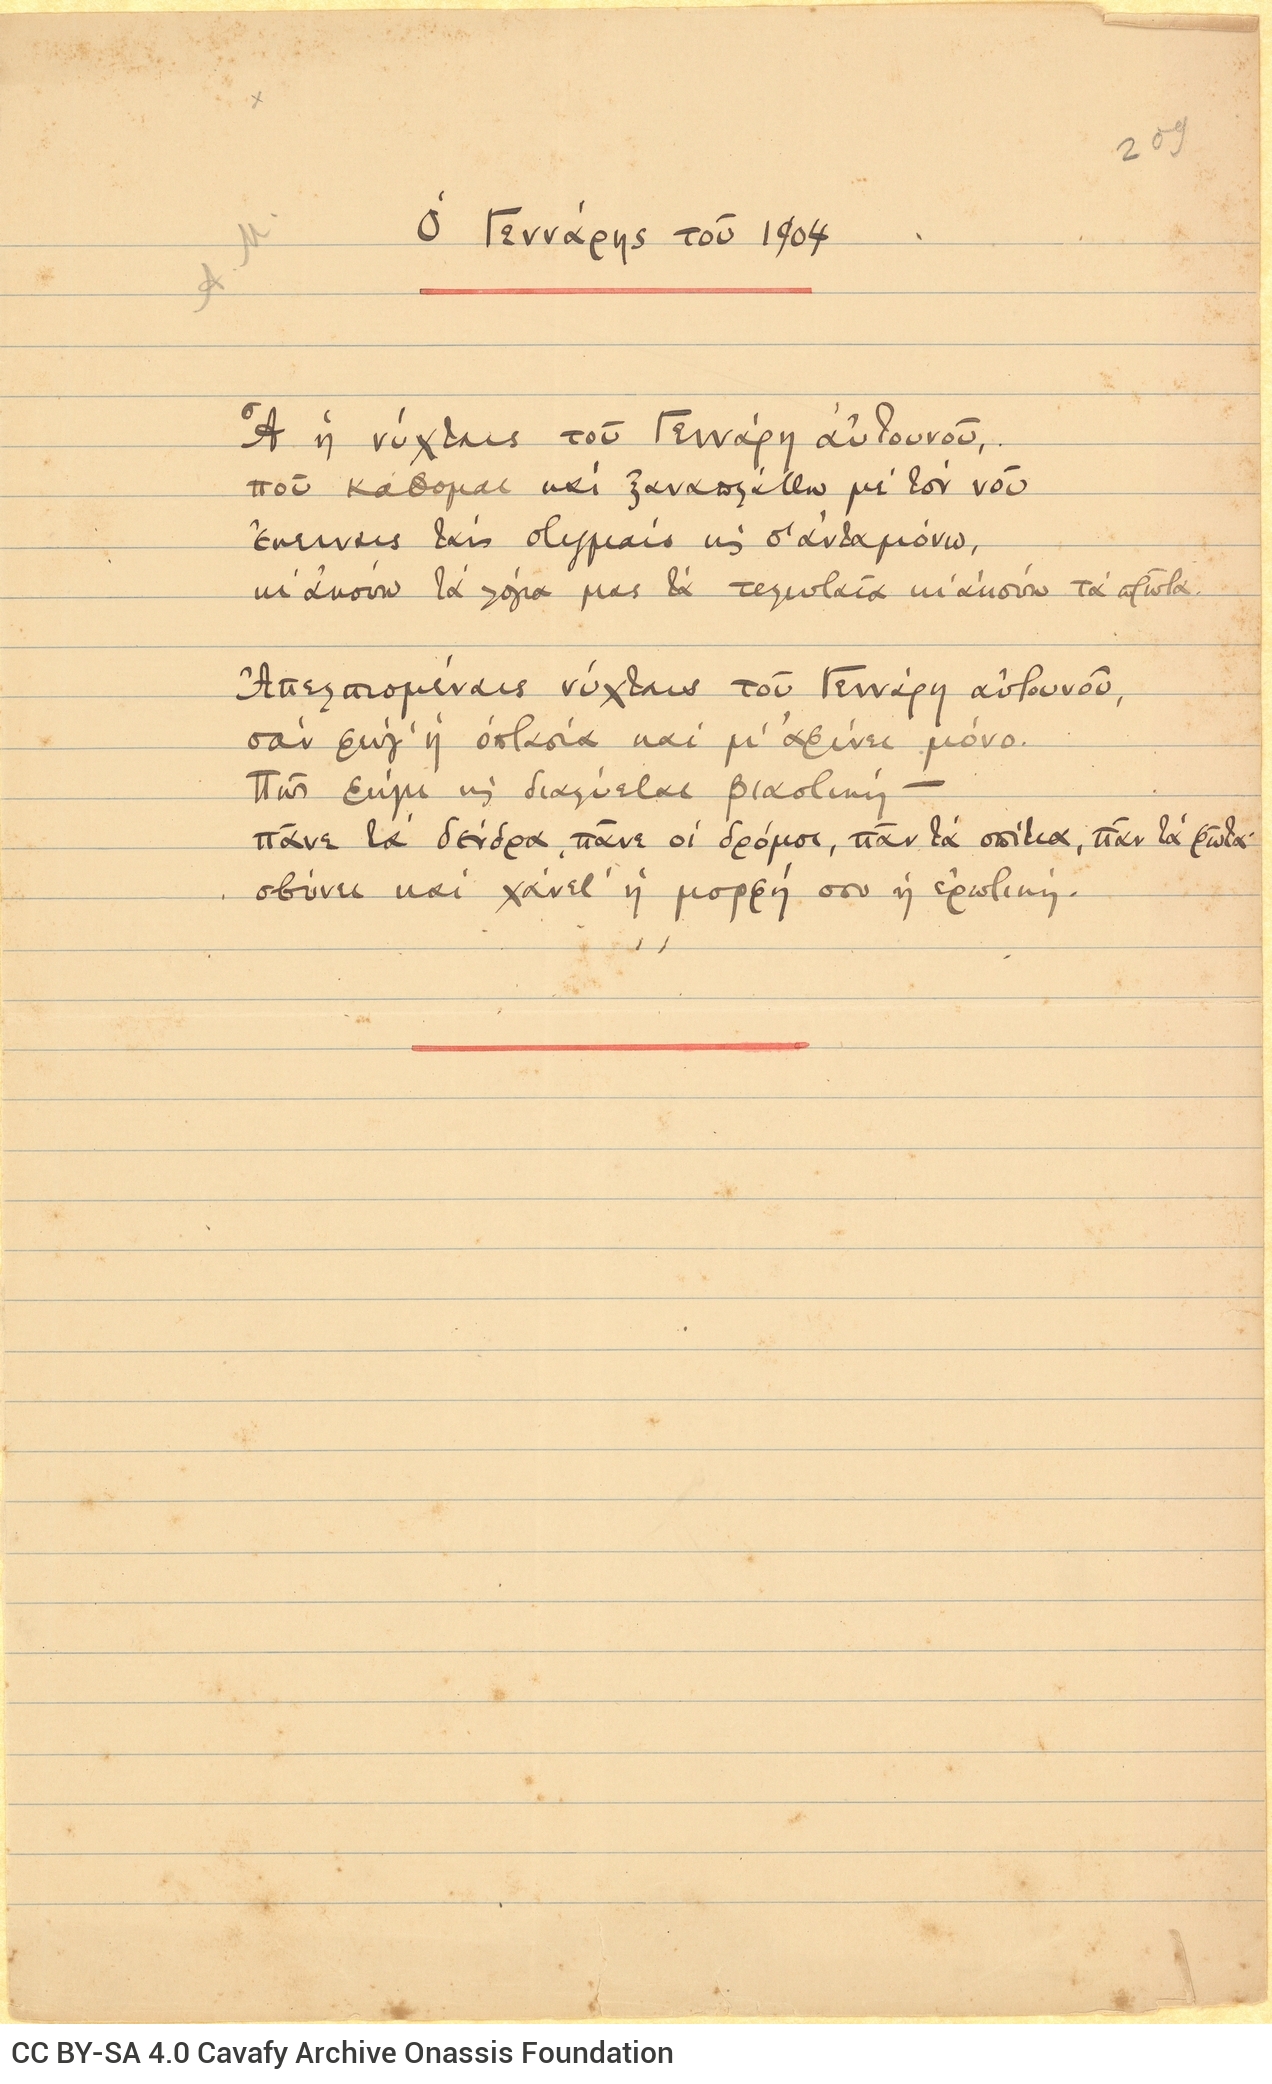 209
Α. Μ.
Ὁ Γεννάρης τοῦ 1904
Ἆ ᾑ νύχταις τοῦ Γεννάρη αὐτουνοῦ,
ποῦ κάθομαι καὶ ξαναπλάττω μὲ τὸν νοῦ
ἐκείναις ταὶς στιγμαὶς κῃ σ' ἀνταμόνω,
κι' ἀκούω τὰ λόγια μας τὰ τελευταῖα κι' ἀκούω τὰ πρῶτα.
Ἀπελπισμέναις νύχταις τοῦ Γεννάρη αὐτουνοῦ,
σὰν φεύγ' ἡ ὀπτασία καὶ μ' ἀφίνει μόνο.
Πῶς φεύγει κῃ διαλύεται βιαστικὴ —
πᾶνε τὰ δένδρα, πᾶνε οἱ δρόμοι, πᾶν τὰ σπίτια, πᾶν τὰ φῶτα·
σβύνει καὶ χάνετ' ἡ μορφή σου ἡ ἐρωτική.
CC BY-SA 4.0 Cavafy Archive Onassis Foundation